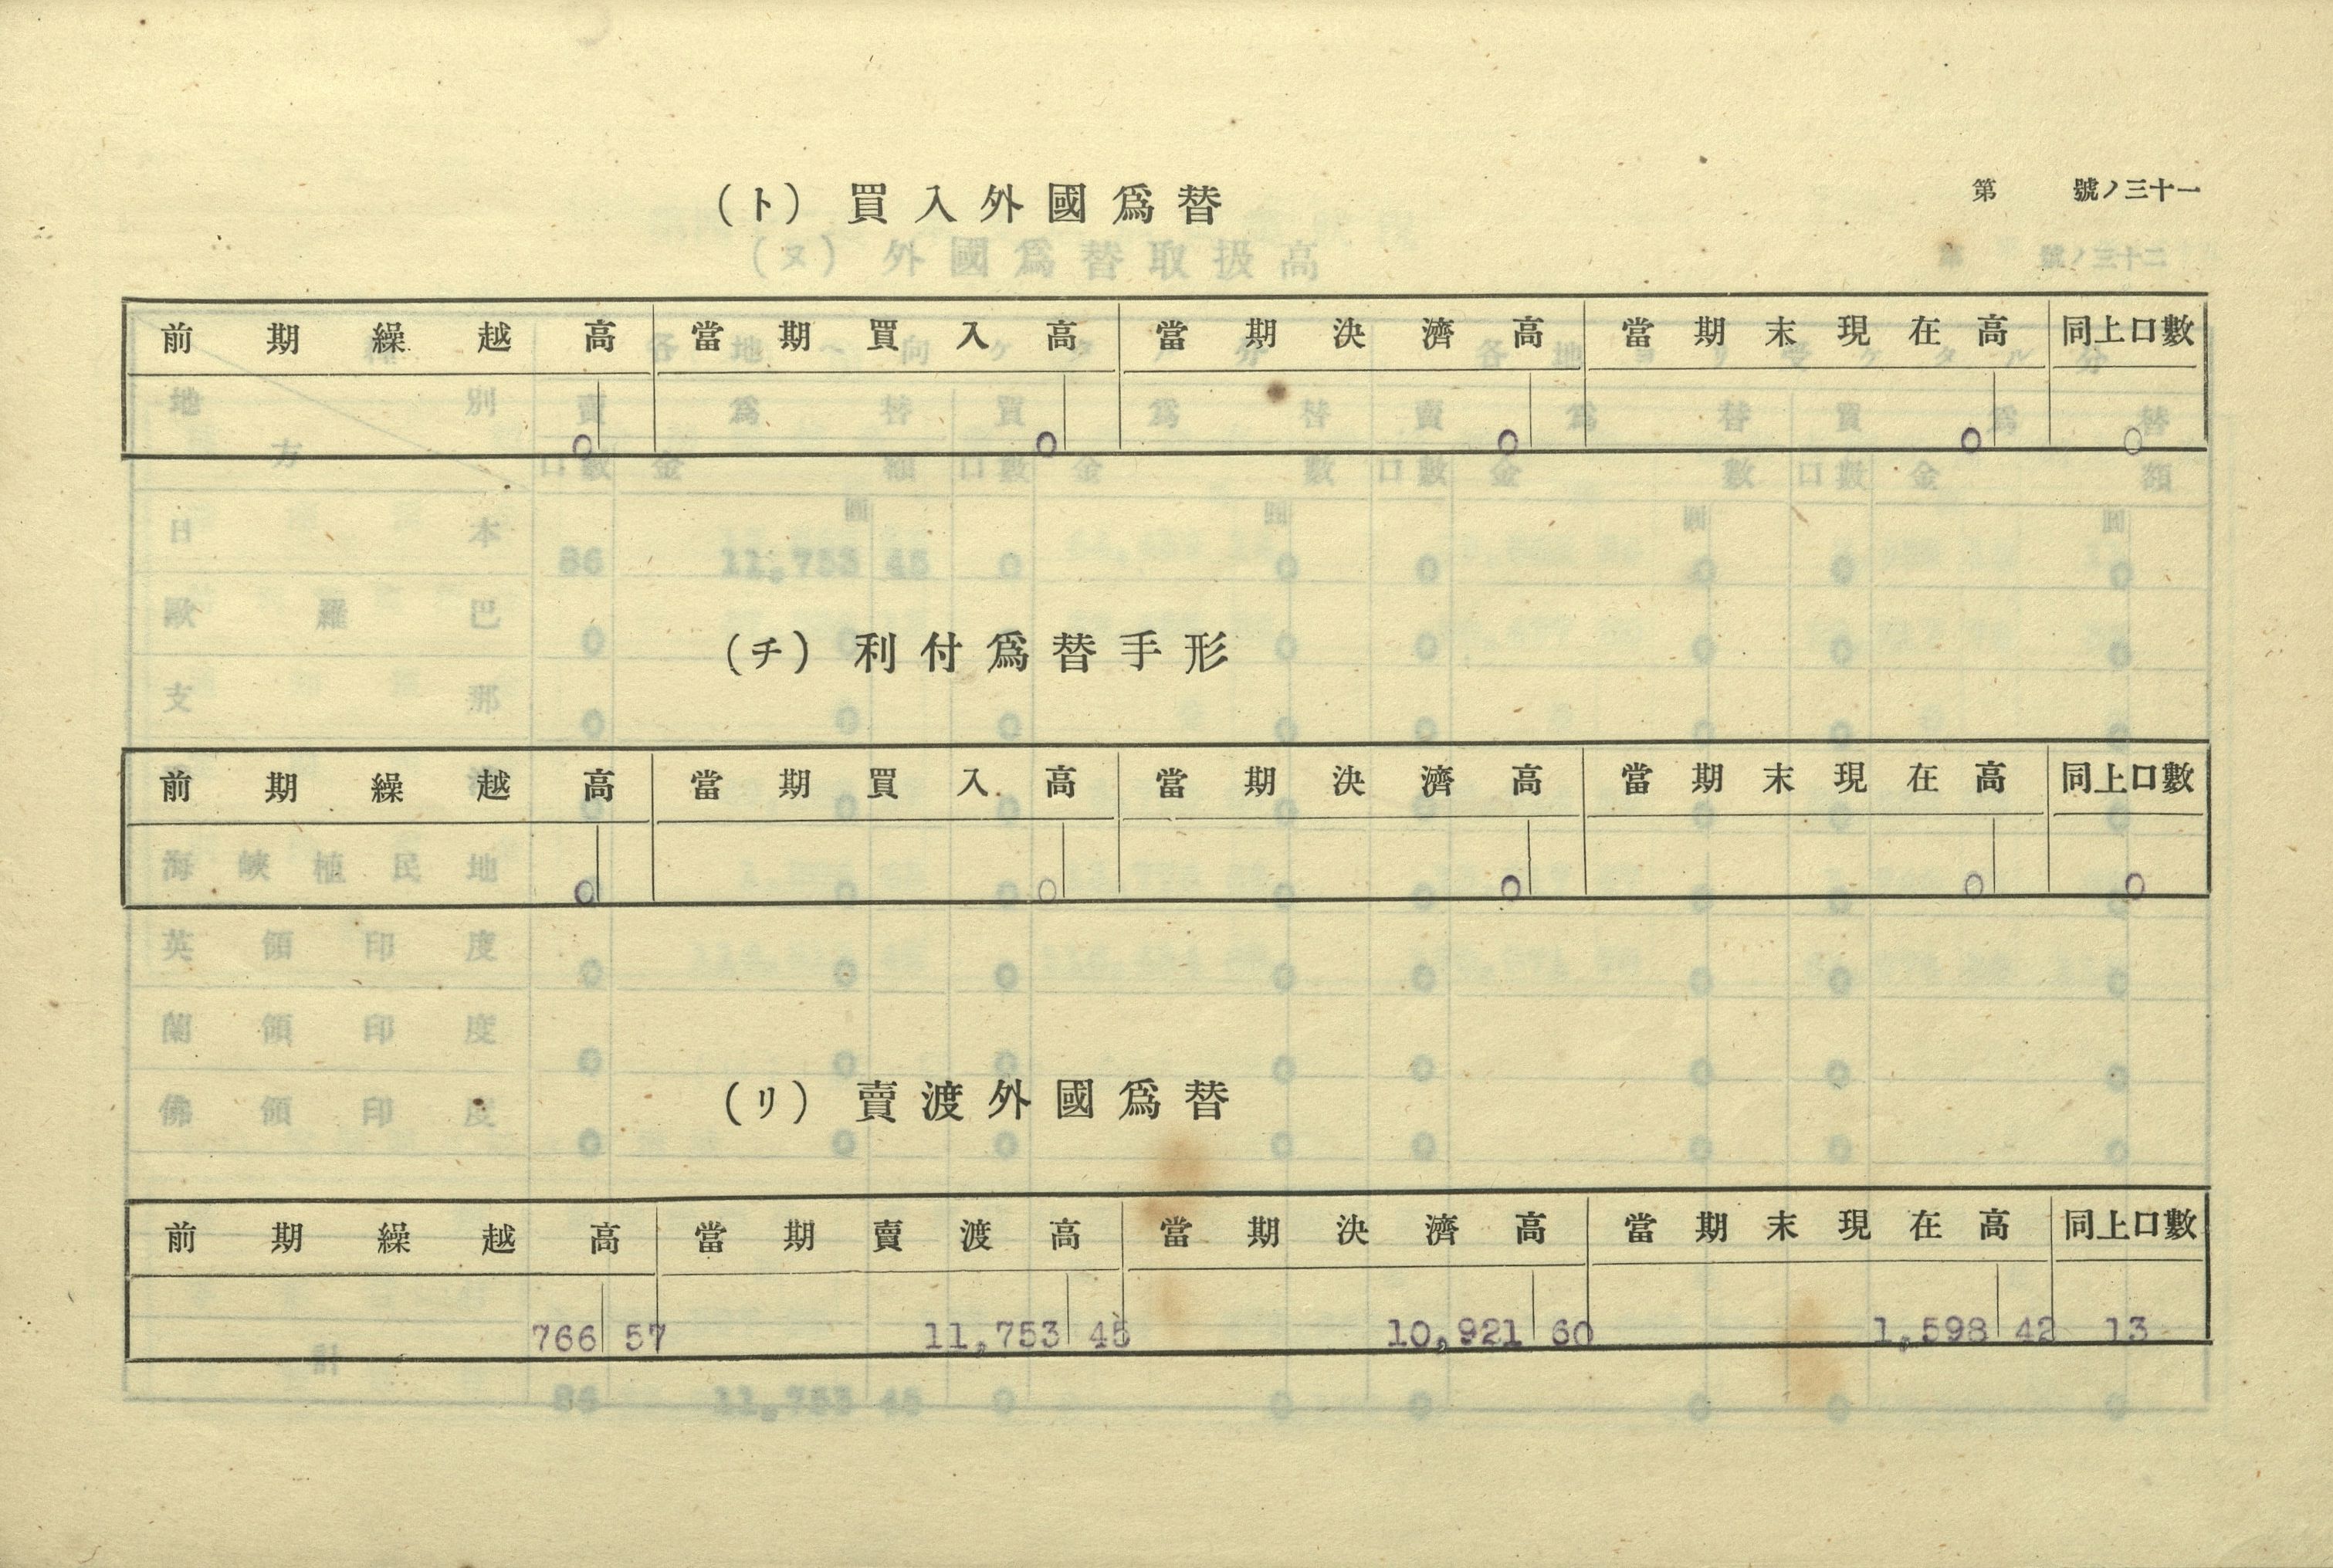 (ト) 買入外國爲替
第 號ノ三十一
前期繰越高 當期買入高 當期決濟高 當期末現在高 同上口數
0 0 0 0 0
(チ) 利付爲替手形
前期繰越高 當期買入高 當期決濟高 當期末現在高 同上口數
0 0 0 0 0
(リ) 賣渡外國爲替
前期繰越高 當期賣渡高 當期決濟高 當期末現在高 同上口數
766 57 11,753 45 10,921 60 1,598 42 13